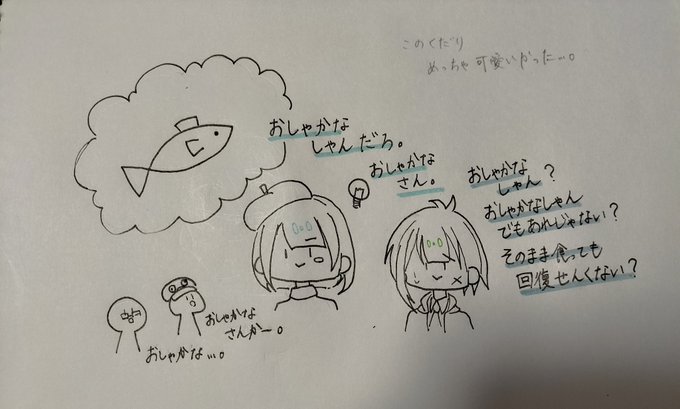 このくだり
めっちゃ可愛いかった…。
おしゃかな
しゃんだろ。
おしゃかな
さん。
おしゃかな
しゃん?
おしゃかなしゃん
でもあれじゃない?
そのまま食っても
回復せんくない?
おしゃかな
さんかー。
おしゃかな…。